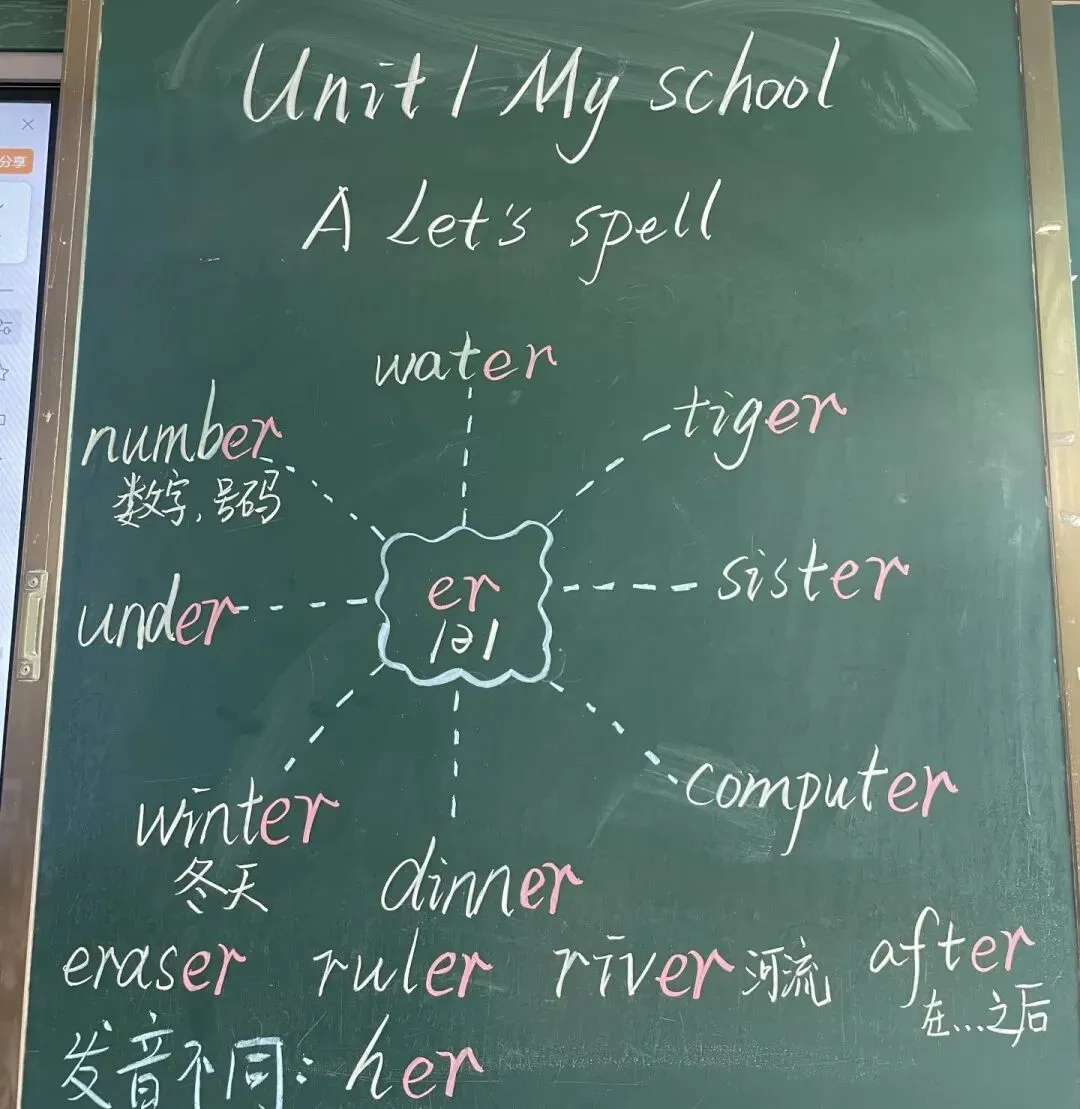 Unit 1 My school
A Let's spell
分享
water
number
tiger
数字,号码
er
/ə/
sister
under
computer
winter
冬天
dinner
eraser ruler river 河流 after
在...之后
发音不同: her